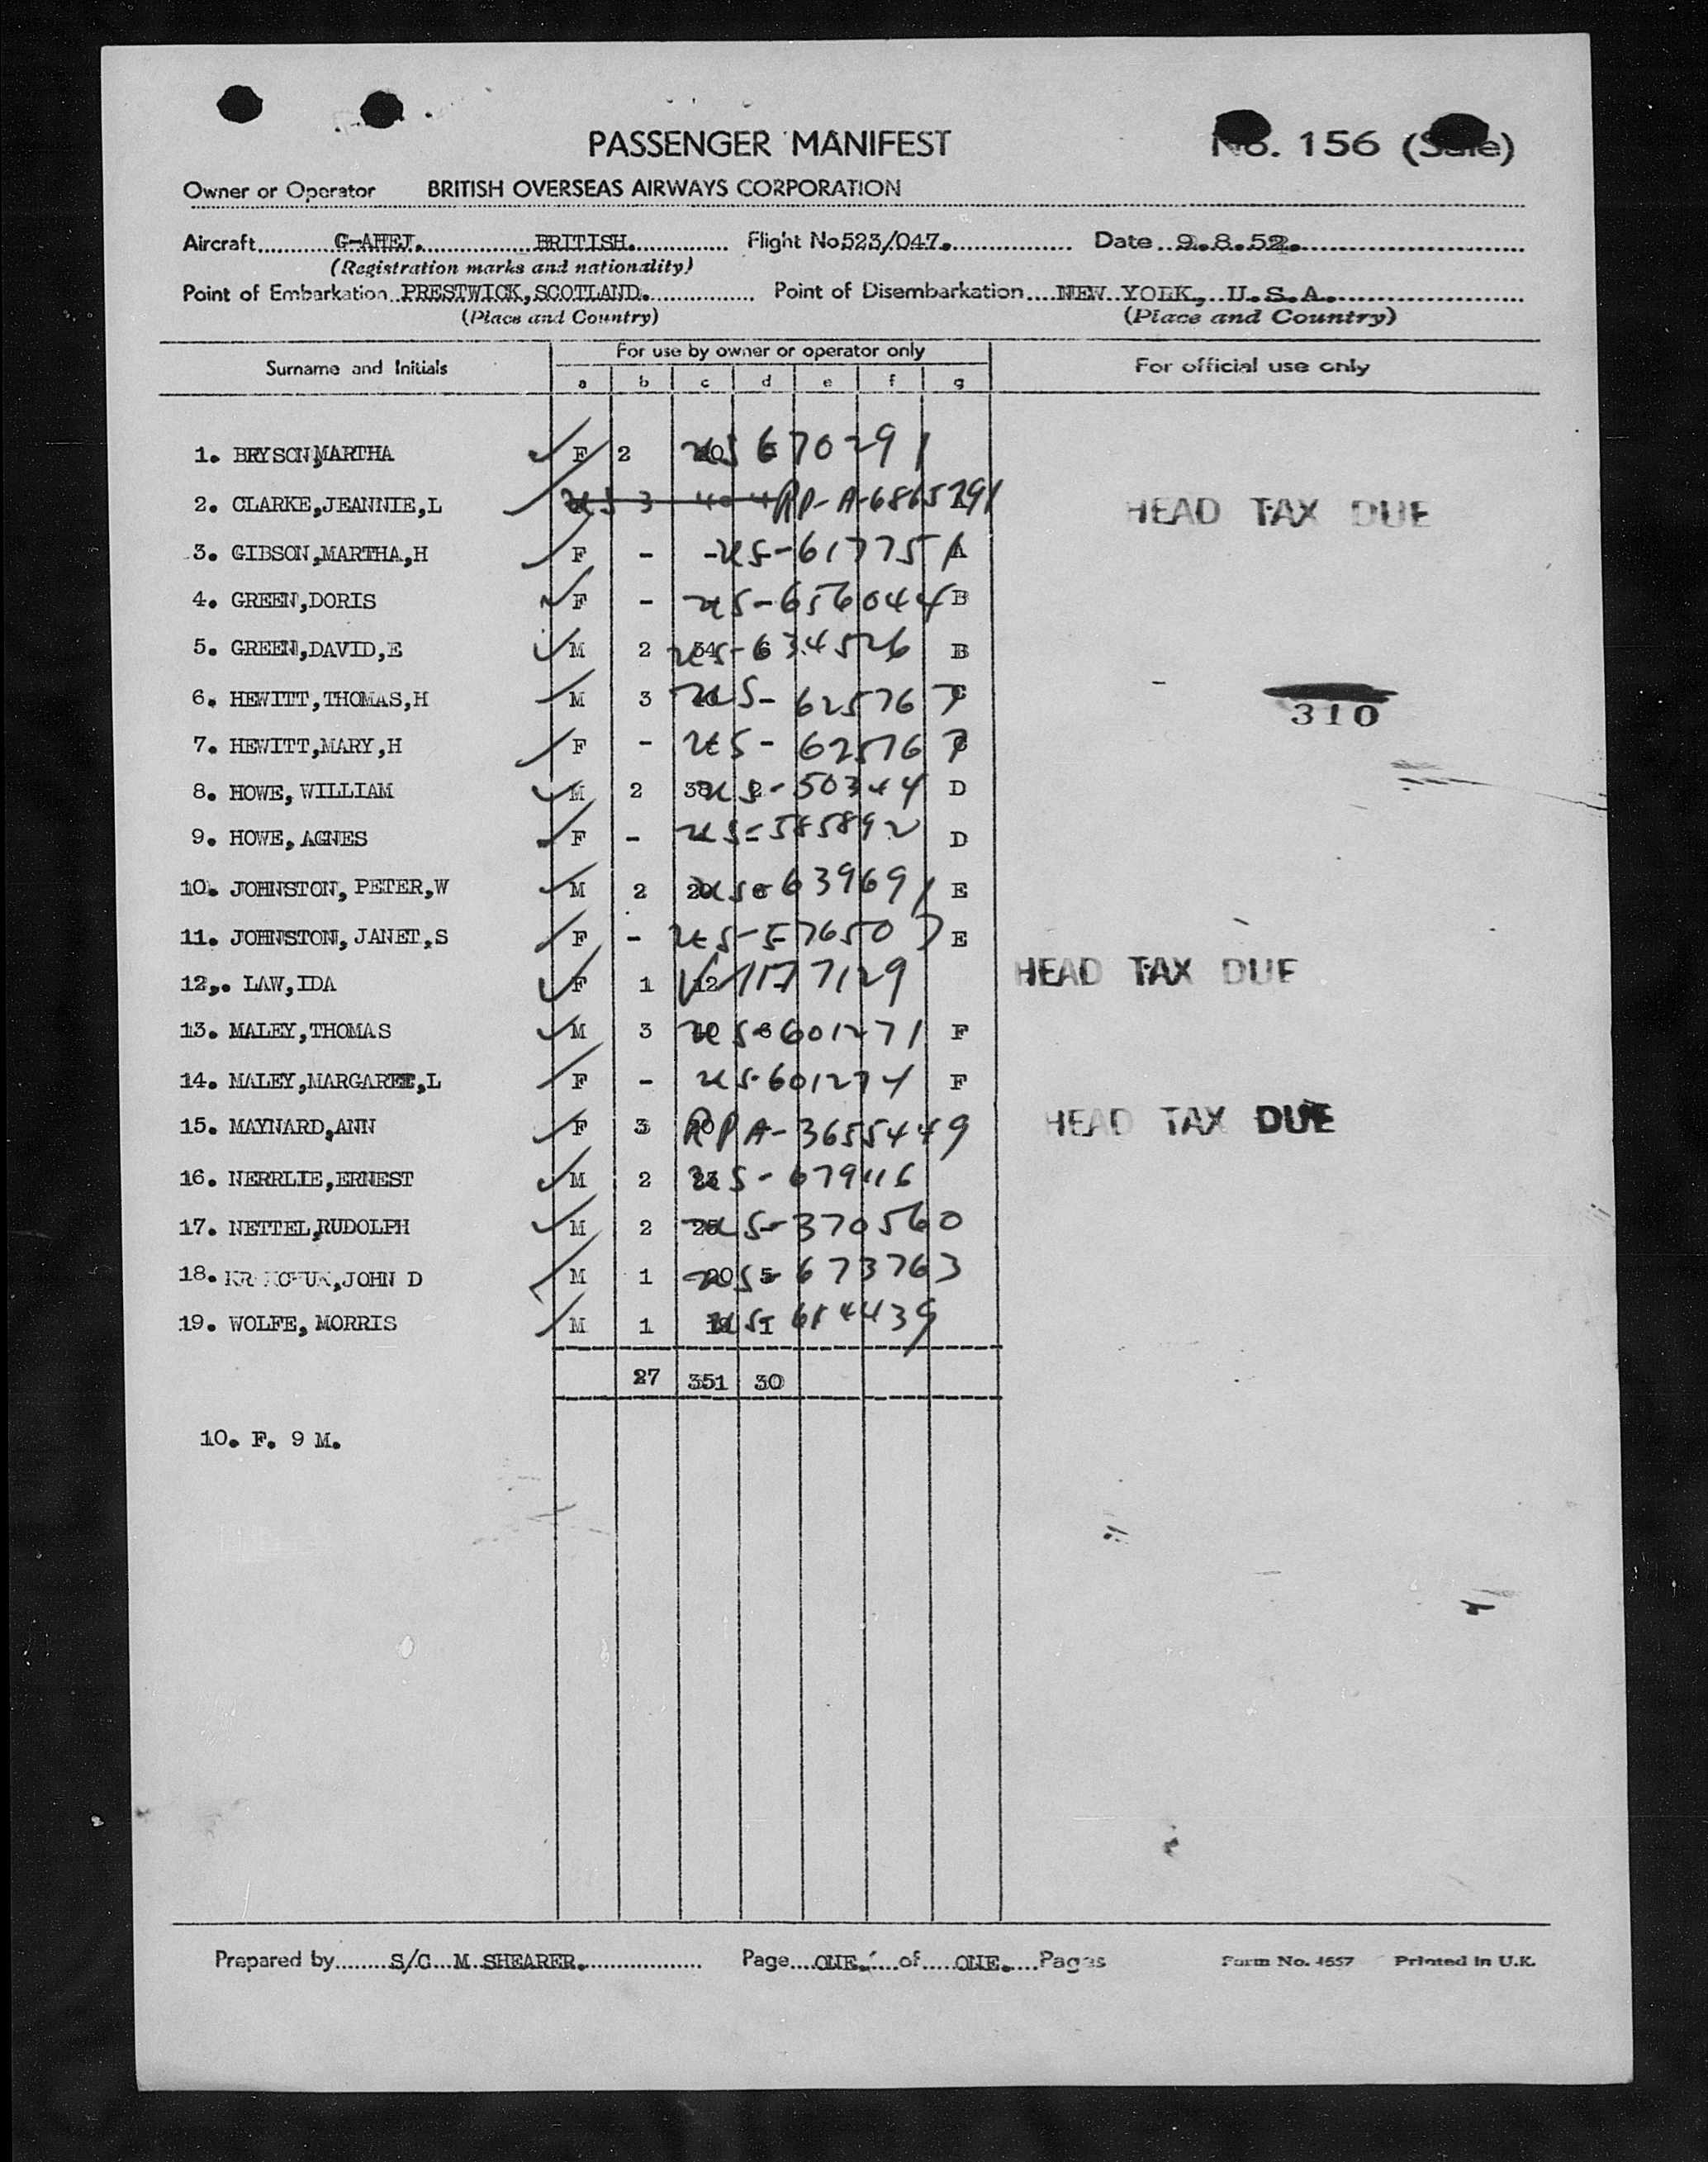 PASSENGER MANIFEST
No. 156 (Sale)
Owner or Operator BRITISH OVERSEAS AIRWAYS CORPORATION
Aircraft G-AHEJ. BRITISH. Flight No 523/047. Date 9.8.52.
(Registration marks and nationality)
Point of Embarkation PRESTWICK, SCOTLAND. Point of Disembarkation NEW YORK, U.S.A.
(Place and Country) (Place and Country)
Surname and Initials For use by owner or operator only For official use only
a b c d e f g
1. BRYSON,MARTHA F 2 US 670291
2. CLARKE,JEANNIE,L 3 RP-A-6865791 HEAD TAX DUE
3. GIBSON,MARTHA,H F - US-617751 A
4. GREEN,DORIS F - US-656044 B
5. GREEN,DAVID,E M 2 US-634526 B
6. HEWITT,THOMAS,H M 3 US-625767 C
310
7. HEWITT,MARY,H F - US-625767 C
8. HOWE, WILLIAM M 2 US-50344 D
9. HOWE, AGNES F - US-585892 D
10. JOHNSTON, PETER,W M 2 US-639691 E
11. JOHNSTON, JANET,S F - US-576507 E
12. LAW,IDA F 1 12 HEAD TAX DUE
13. MALEY,THOMAS M 3 US-601271 F
14. MALEY,MARGARET,L F - US-601274 F
15. MAYNARD,ANN F 3 RP A-3655449 HEAD TAX DUE
16. NERRLIE,ERNEST M 2 US-679116
17. NETTEL,RUDOLPH M 2 US-370560
18. JOHN D M 1 20 5 US-673763
19. WOLFE, MORRIS M 1 US-614439
27 351 30
10. F. 9 M.
Prepared by S/C M SHEARER. Page ONE. of ONE. Pages Form No. 4557 Printed in U.K.